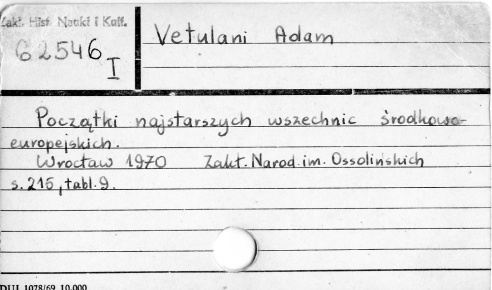 Zakł. Hist. Nauki i Kult.
62546
I
Vetulani Adam
Początki najstarszych wszechnic środkowo-
europejskich.
Wrocław 1970 Zakł. Narod. im. Ossolińskich
s. 215, tabl. 9.
DUJ. 1078/69 10.000